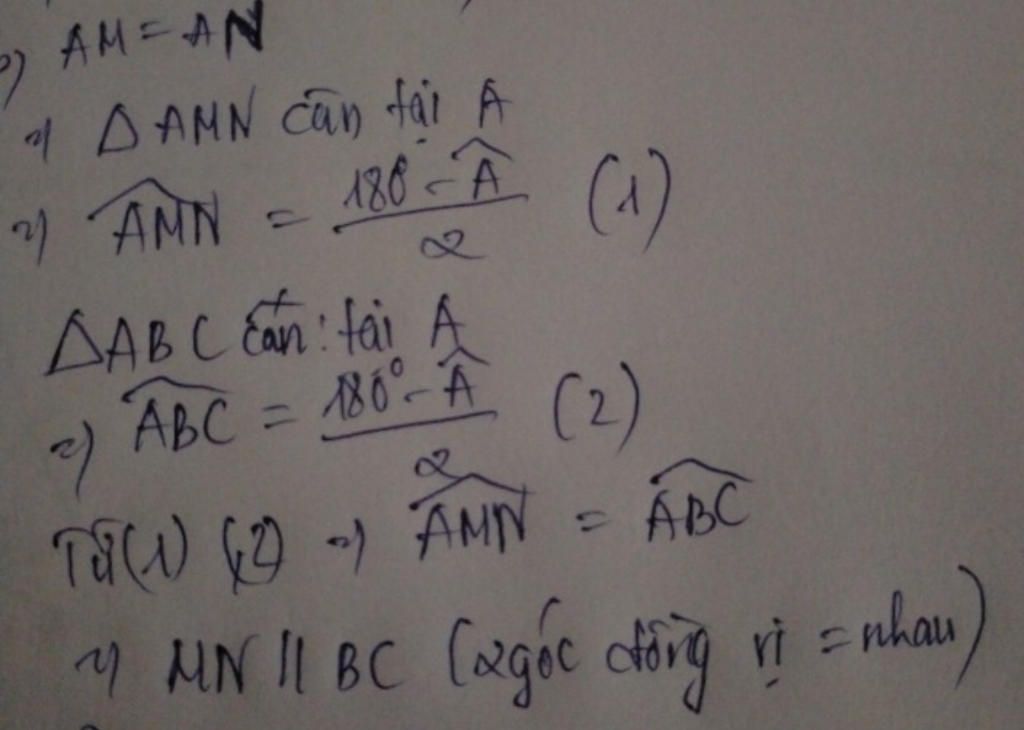 AM = AN
=> ΔAMN cân tại A
=> \widehat{AMN} = \frac{180° - \widehat{A}}{2} (1)
ΔABC cân: tại A
=> \widehat{ABC} = \frac{180° - \widehat{A}}{2} (2)
Từ (1) (2) => \widehat{AMN} = \widehat{ABC}
=> MN // BC (2 góc đồng vị = nhau)